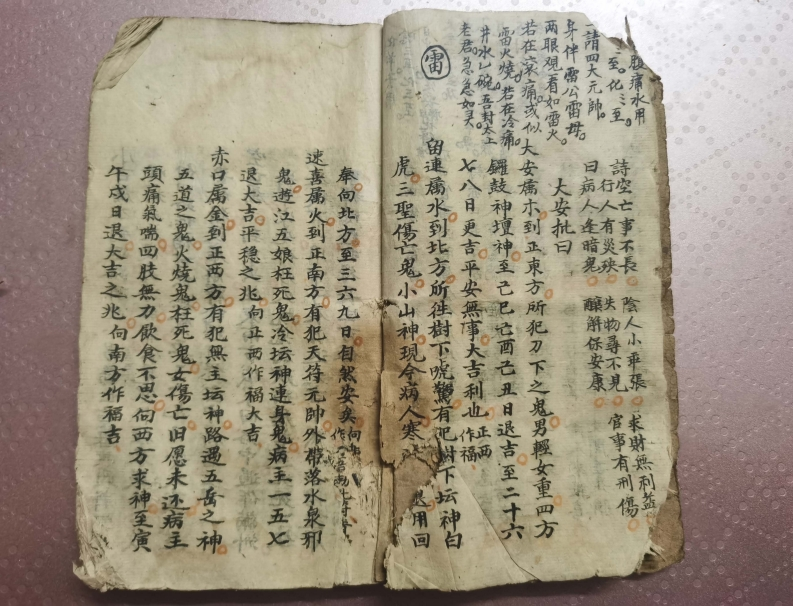 腹痛水用
至。化々至
一請四大元帥。
身伴雷公雷母。
两眼觀看如雷火。
若在哀痛或似
雷火燒。若在冷痛。
井水乙碗吾封太上
老君急急如灵
雷
詩空亡事不長 陰人小乖張 求財無利益
行人有災殃 失物尋不見 官事有刑傷
曰病人逢暗鬼 釀解保安康
大安批曰
大安属木到正東方所犯刀下之鬼男輕女重四方
鑼鼓神壇神至己巳亡酉己丑日退吉至二十六
七八日更吉平安無事大吉利也 正西作福
留連属水到北方所徃樹下唬驚有犯樹下坛神白
虎三聖傷亡鬼小山神現令病人寒 退用回
奉向北方至三六九日自然安矣
速喜属火到正南方有犯天符元帥外幣落水泉邪
鬼遊江五娘枉死鬼冷坛神連身鬼病主一五七
退大吉平稳之兆 向正西作福大吉
赤口属金到正西方有犯無主坛神路遇五岳之神
五道之鬼火燒鬼枉死鬼女傷亡旧愿未还病主
頭痛氣喘四肢無力飲食不思向西方求神至寅
午戍日退大吉之兆向南方作福吉